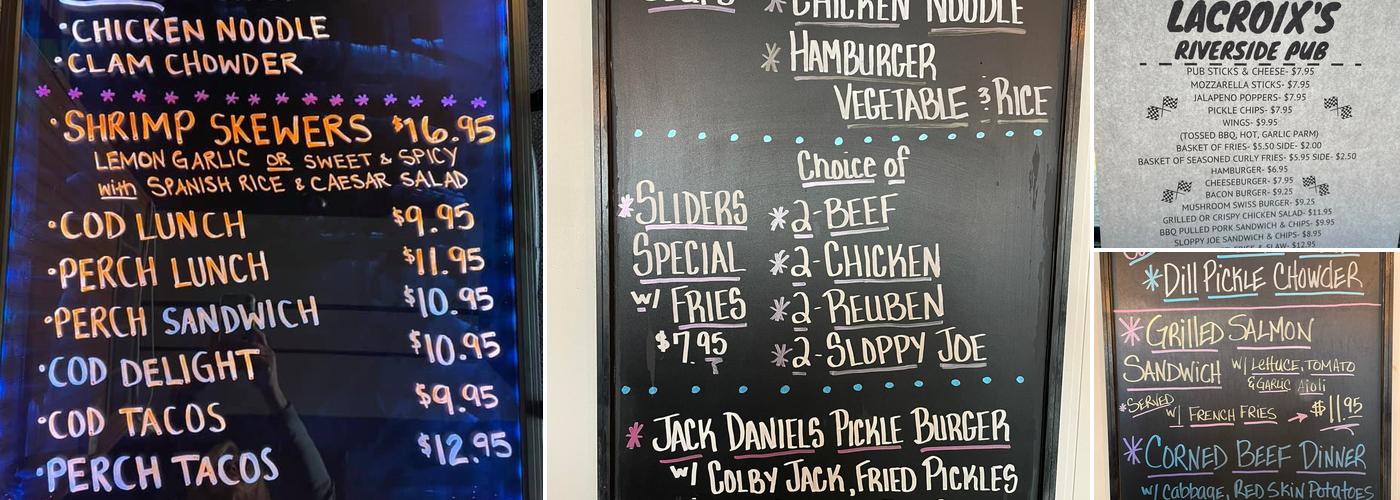 •CHICKEN NOODLE
•CLAM CHOWDER
•SHRIMP SKEWERS $16.95
LEMON GARLIC OR SWEET & SPICY
with SPANISH RICE & CAESAR SALAD
•COD LUNCH $9.95
•PERCH LUNCH $11.95
•PERCH SANDWICH $10.95
•COD DELIGHT $10.95
•COD TACOS $9.95
•PERCH TACOS $12.95
* CHICKEN NOODLE
* HAMBURGER
VEGETABLE & RICE
Choice of
*SLIDERS
SPECIAL
w/ FRIES
$7.95
*2-BEEF
*2-CHICKEN
*2-REUBEN
*2-SLOPPY JOE
* JACK DANIELS PICKLE BURGER
w/ COLBY JACK, FRIED PICKLES
LACROIX'S
RIVERSIDE PUB
PUB STICKS & CHEESE- $7.95
MOZZARELLA STICKS- $7.95
JALAPENO POPPERS- $7.95
PICKLE CHIPS- $7.95
WINGS- $9.95
(TOSSED BBQ, HOT, GARLIC PARM)
BASKET OF FRIES- $5.50 SIDE- $2.00
BASKET OF SEASONED CURLY FRIES- $5.95 SIDE- $2.50
HAMBURGER- $6.95
CHEESEBURGER- $7.95
BACON BURGER- $9.25
MUSHROOM SWISS BURGER- $9.25
GRILLED OR CRISPY CHICKEN SALAD- $11.95
BBQ PULLED PORK SANDWICH & CHIPS- $9.95
SLOPPY JOE SANDWICH & CHIPS- $8.95
& SLAW- $12.95
*DILL PICKLE CHOWDER
*GRILLED SALMON
SANDWICH w/ LETTUCE, TOMATO
& GARLIC Aioli
*SERVED
w/ FRENCH FRIES → $11.95
*CORNED BEEF DINNER
w/ Cabbage, RED SKIN POTATOES